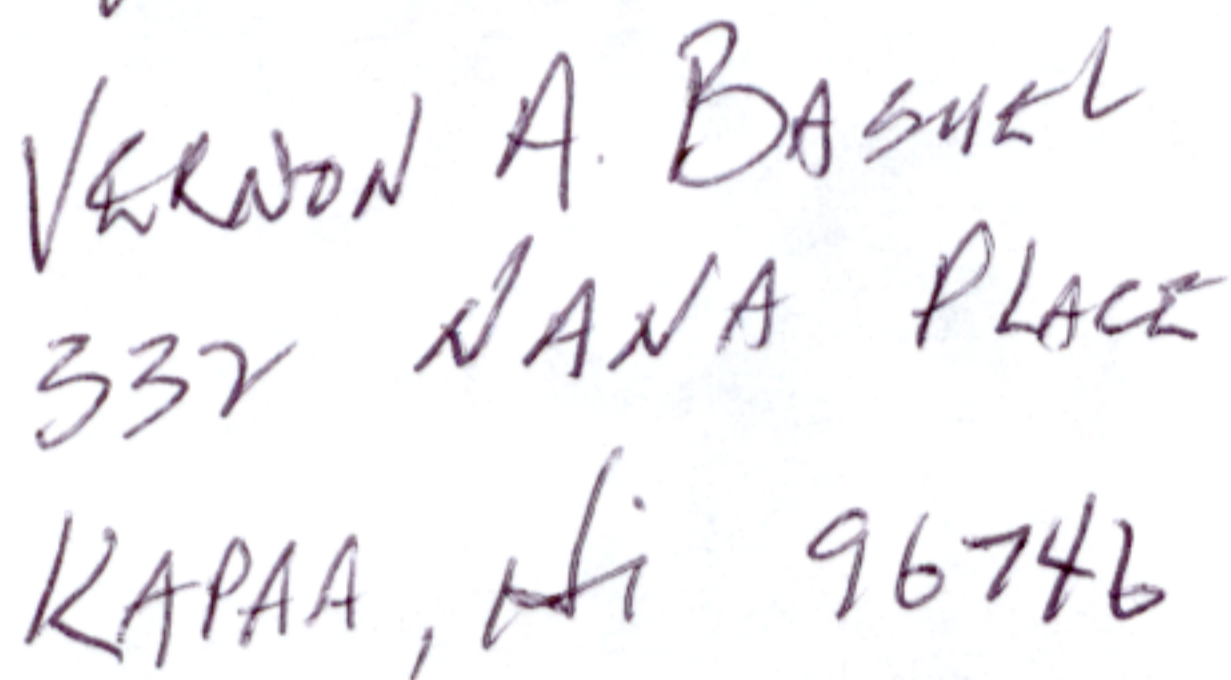 VERNON A. BASHEL
332 NANA PLACE
KAPAA, Hi 96746